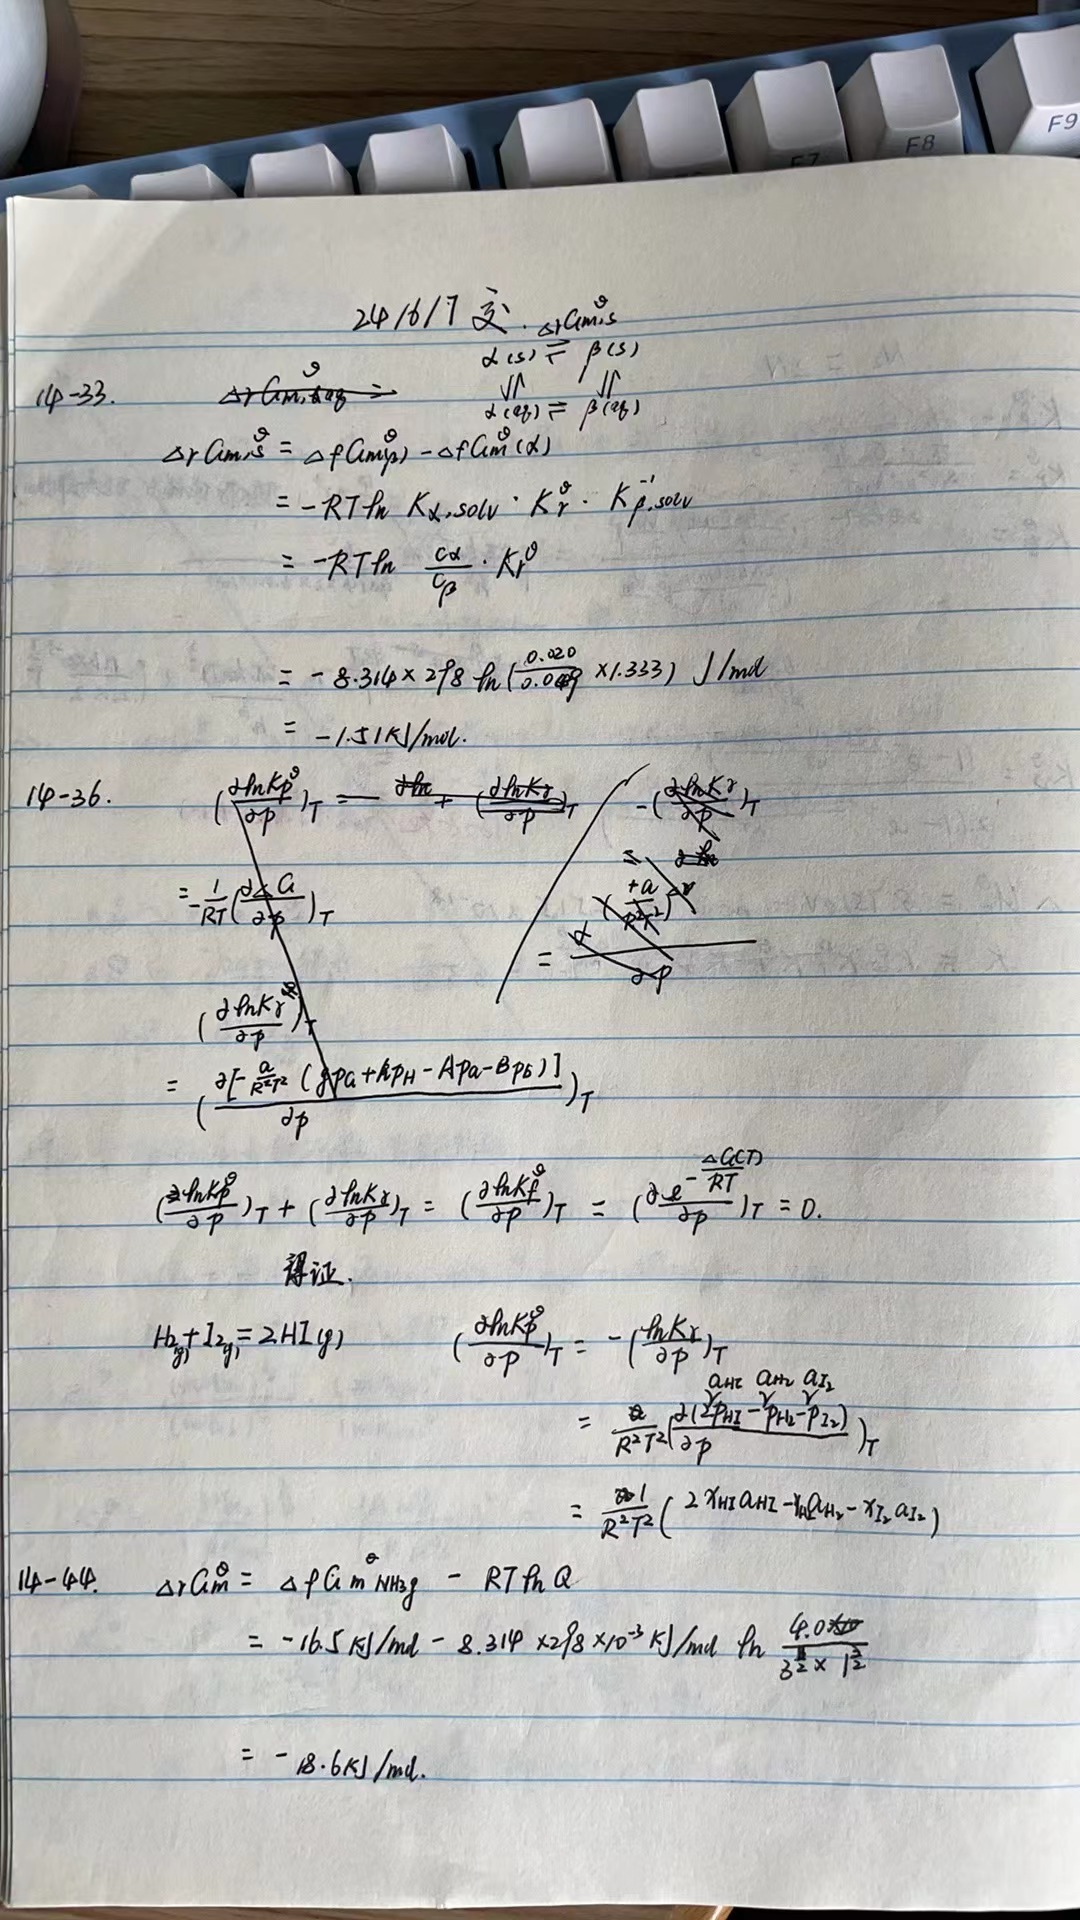 F7
F8
F9
24/6/7 交.
ΔrGm,s^θ
α(s) ⇌ β(s)
14-33.
α(aq) ⇌ β(aq)
ΔrGm,s^θ = ΔfGm^θ(β) - ΔfGm^θ(α)
= -RTln Kα,solv · Kr^θ · Kβ,solv^-1
= -RTln cα/cβ · Kr^θ
= -8.314×298 ln(0.020/0.049 ×1.333) J/mol
= -1.51KJ/mol.
14-36.
(∂lnKp^θ/∂p)T = - + (∂lnKγ/∂p)T
-(∂lnKγ/∂p)T
= -1/RT (∂ΔG/∂p)T
(∂lnKγ/∂p)T
= (∂[-a/R²T² (gpG+hpH-ApA-BpB)]/∂p)T
(∂lnKp^θ/∂p)T + (∂lnKγ/∂p)T = (∂lnKf^θ/∂p)T = (∂e^(-ΔG(T)/RT)/∂p)T = 0.
得证.
H2(g)+I2(g)=2HI(g) (∂lnKp^θ/∂p)T = -(lnKγ/∂p)T
aHI aH2 aI2
= 1/R²T² (∂(2pHI-pH2-pI2)/∂p)T
= 1/R²T² (2xHIaHI-xH2aH2-xI2aI2)
14-44. ΔrGm^θ = ΔfGm^θ NH3g - RTlnQ
= -16.5KJ/mol - 8.314×298×10^-3 KJ/mol ln 4.0/3^(1/2)×1^(3/2)
= -18.6KJ/mol.